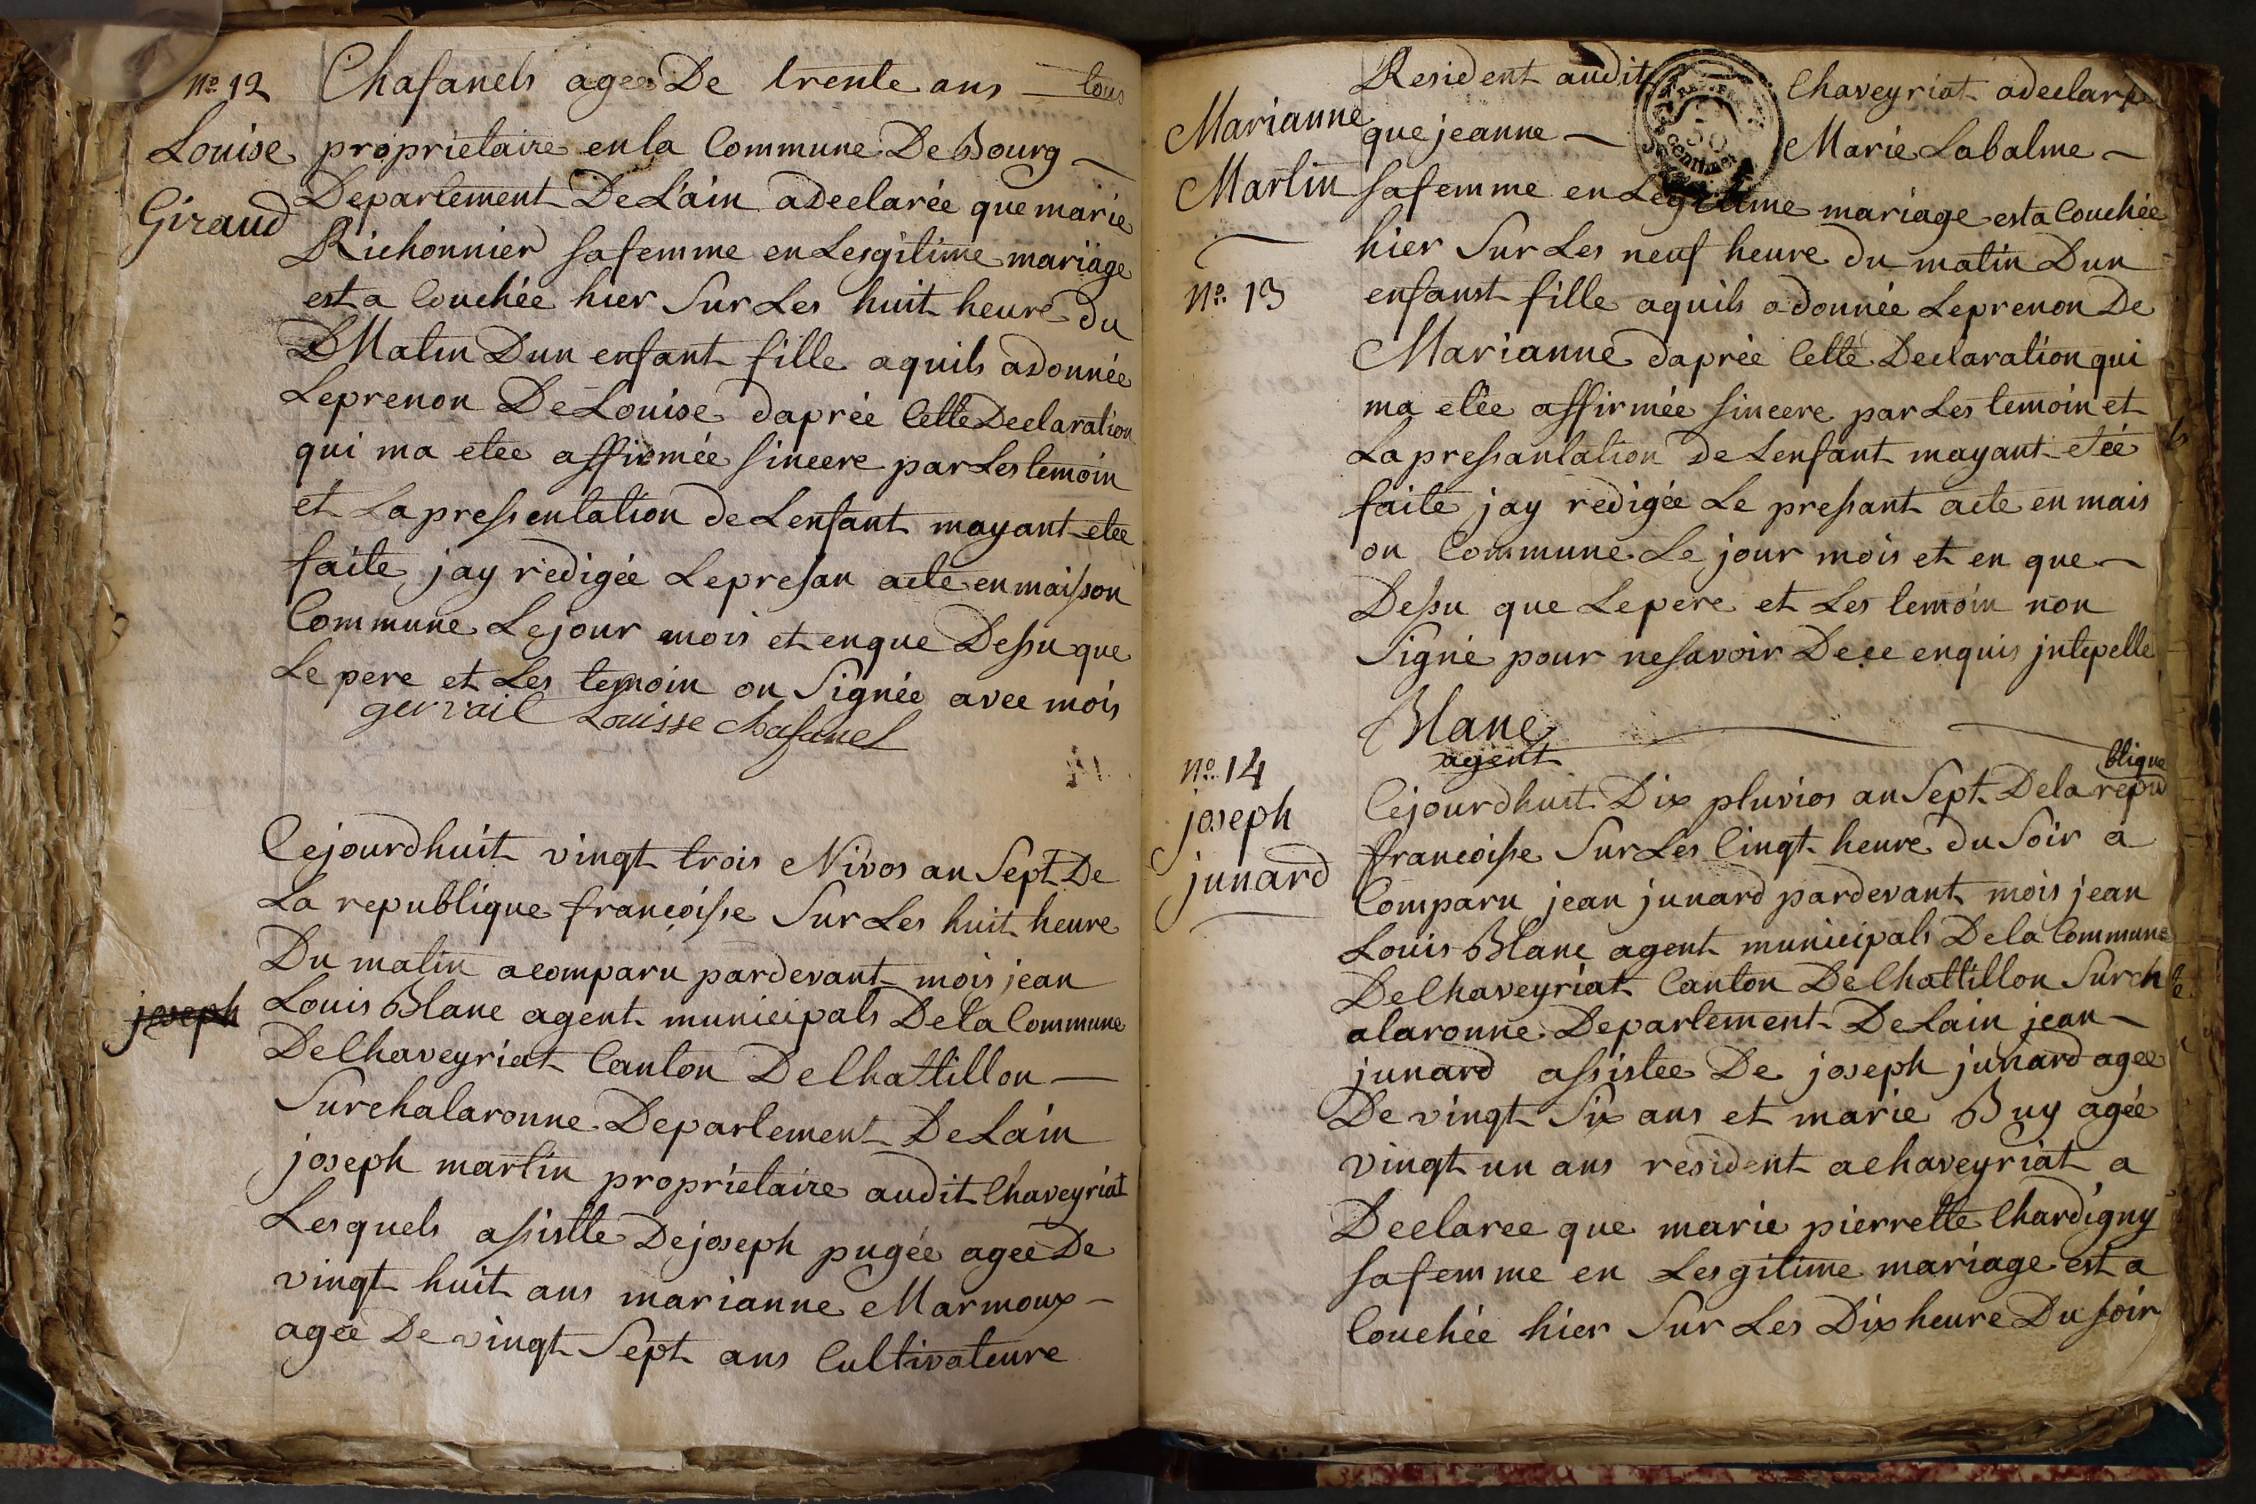 nº 12
Louise
Giraud
Chafanels agee De trente ans — tous
proprietaire en la Commune De Bourg —
Departement De L'ain a Declarée que marie
Richonnier sa femme en Lesgitime mariage
est a Couchée hier Sur Les huit heure du
Matin Dun enfant fille a quils a donnée
Le prenon De Louise daprée Cette Declaration
qui ma etee affirmée sincere par Les temoin
et La pressentation de Lenfant mayant etee
faite jay redigée Le presan acte en maisson
Commune Le jour mois et en que Dessu que
Le pere et Les temoin on Signée avec mois
gervail Louisse Chafanel
Cejourdhuit vingt trois Nivos an Sept De
La republique françoisse Sur Les huit heure
Du matin a comparu pardevant mois jean
Louis Blanc agent municipals De la Commune
joseph
De Chaveyriat Canton De Chattillon —
Sur chalaronne Departement De Lain
joseph martin proprietaire audit Chaveyriat
Lesquels assistte De joseph pugée agee De
vingt huit ans marianne Marmoux —
agée De vingt Sept ans Cultivateure
Marianne
Martin
nº 13
Resident audit Chaveyriat a declare
que jeanne — Marie Labalme —
50
centimes
sa femme en Legitime mariage est a Couchée
hier Sur Les neuf heure du matin Dun
enfanst fille a quils a donnée Le prenon De
Marianne daprée Cette Declaration qui
ma etée affirmée sincere par Les temoin et
La pressantation De Lenfant mayant etée
faite jay redigée Le pressant acte en mais
on Commune Le jour mois et en que —
Dessu que Le pere et Les temoin non
Signé pour ne savoir De ce enquis jntepelle
Blanc
agent
nº 14
joseph
junard
Cejourdhuit Dix pluvios an Sept De la repu
blique
francoisse Sur Les Cinqt heure du Soir a
Comparu jean junard pardevant mois jean
Louis Blanc agent municipals De la Commune
De Chaveyriat Canton De Chattillon Sur ch
alaronne Departement De Lain jean —
junard assistee De joseph junard agee
De vingt Six ans et marie Buy agée
vingt un ans resident a chaveyriat a
Declaree que marie pierrette Chardigny
sa femme en Lesgitime mariage est a
Couchée hier Sur Les Dix heure Du soir